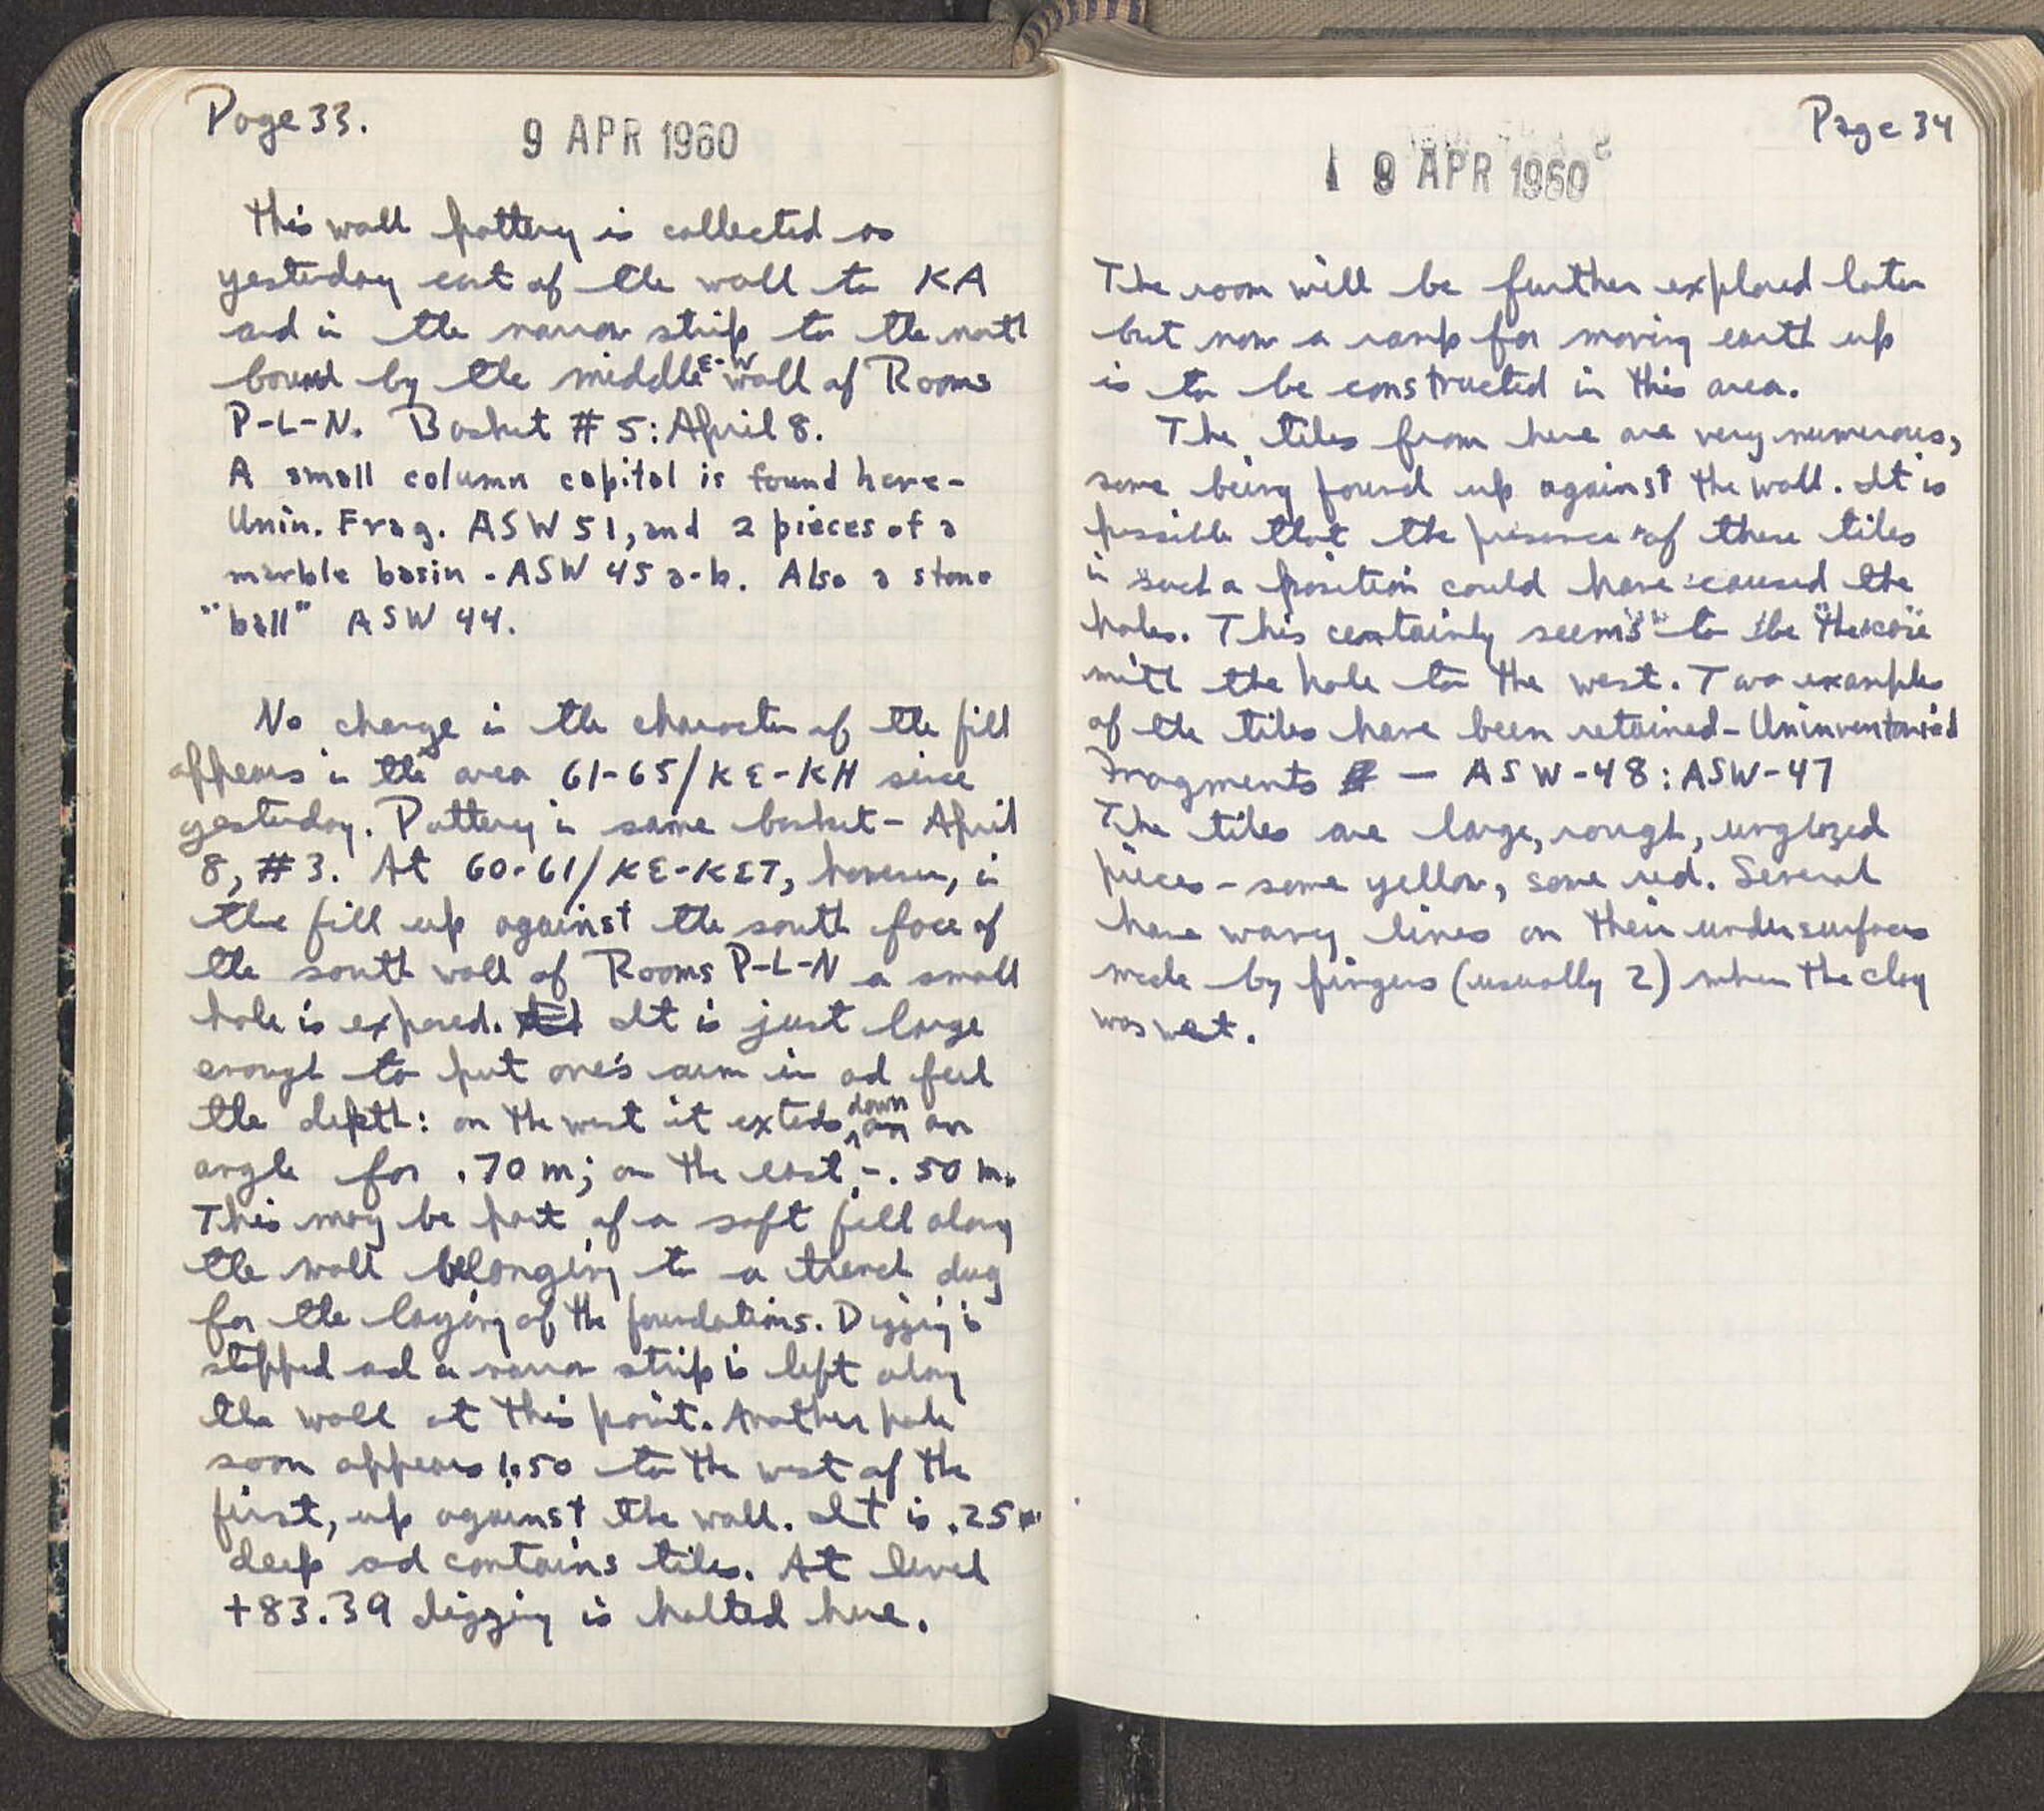 Page 33.
9 APR 1960
This wall pottery is collected as
yesterday east of the wall to KA
and in the narrow strip to the north
bound by the middle E-W wall of Rooms
P-L-N. Basket # 5: April 8.
A small column capital is found here-
Unin. Frag. ASW 51, and 2 pieces of a
marble basin - ASW 45 a-b. Also a stone
"ball" ASW 44.
No change in the character of the fill
appears in the area 61-65/KE-KH since
yesterday. Pottery in same basket - April
8, #3. At 60-61/KE-KET, however, in
the fill up against the south face of
the south wall of Rooms P-L-N a small
hole is exposed. It is just large
enough to put one's arm in and feel
the depth: on the west it extends down on an
angle for .70 m; on the east, - .50 m.
This may be part of a soft fill along
the wall belonging to a trench dug
for the laying of the foundations. Digging is
stopped and a narrow strip is left along
the wall at this point. Another hole
soon appears 1.50 to the west of the
first, up against the wall. It is .25 m
deep and contains tiles. At level
+83.39 digging is halted here.
Page 34
19 APR 1960
The room will be further explored later
but now a ramp for moving earth up
is to be constructed in this area.
The tiles from here are very numerous,
some being found up against the wall. It is
possible that the presence of these tiles
in such a position could have caused the
holes. This certainly seems to be the case
with the hole to the west. Two examples
of the tiles have been retained - Uninventoried
Fragments - ASW-48 : ASW-47
The tiles are large, rough, unglazed
pieces - some yellow, some red. Several
have wavy lines on their undersurfaces
made by fingers (usually 2) when the clay
was wet.